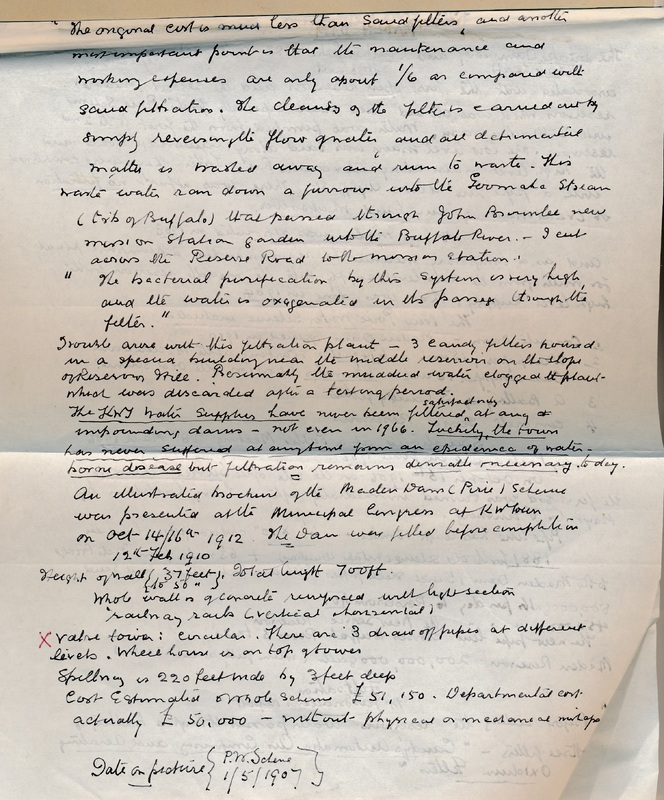 "The original cost is much less than sand filters, and another
most important point is that the maintenance and
working expenses are only about 1/6 as compared with
sand filtration. The cleansing of the filters is carried out by
simply reversing the flow of water and all detrimental
matter is washed away and run to waste. This
waste water ran down a furrow into the Stream
(trib of Buffalo) that passed through John Brownlee new
mission Station garden into the Buffalo River. – I cut
across the Reserve Road to the mission station.
" The bacterial purification by this system is very high,
and the water is oxygenated in its passage through the
filter."
Trouble arose with this filtration plant – 3 Candy filters housed
in a special building near the middle reservoir on the slope
of Reservoir Hill. Presumably the mudded water clogged the plant –
which was discarded after a testing period.
The KWT Water Supplies have never been filtered satisfactorily at any
impounding dams – not even in 1966. Luckily, the town
has never suffered at any time from an epidemic of water-
borne disease but filtration remains necessary to day.
An illustrated brochure of the Maden Dam (Pirie) Scheme
was presented at the Municipal Congress at KWTown
on Oct 14/16th 1912 The Dam were filled before completion
12th Feb 1910
Height of wall (37 feet). Total length 700 ft
(to 50 ")
Whole wall is of concrete reinforced with light section
railway rails (vertical & horizontal)
X Valve tower: circular. There are 3 draw off pipes at different
levels. Wheel house is on top of tower
Spillway is 220 feet wide by 3 feet deep
Cost Estimated of whole Scheme £51,150. Departmental cost
actually £50,000 – without physical or mechanical mishaps
Date on picture { P.W. Scheme
1/5/1907 }